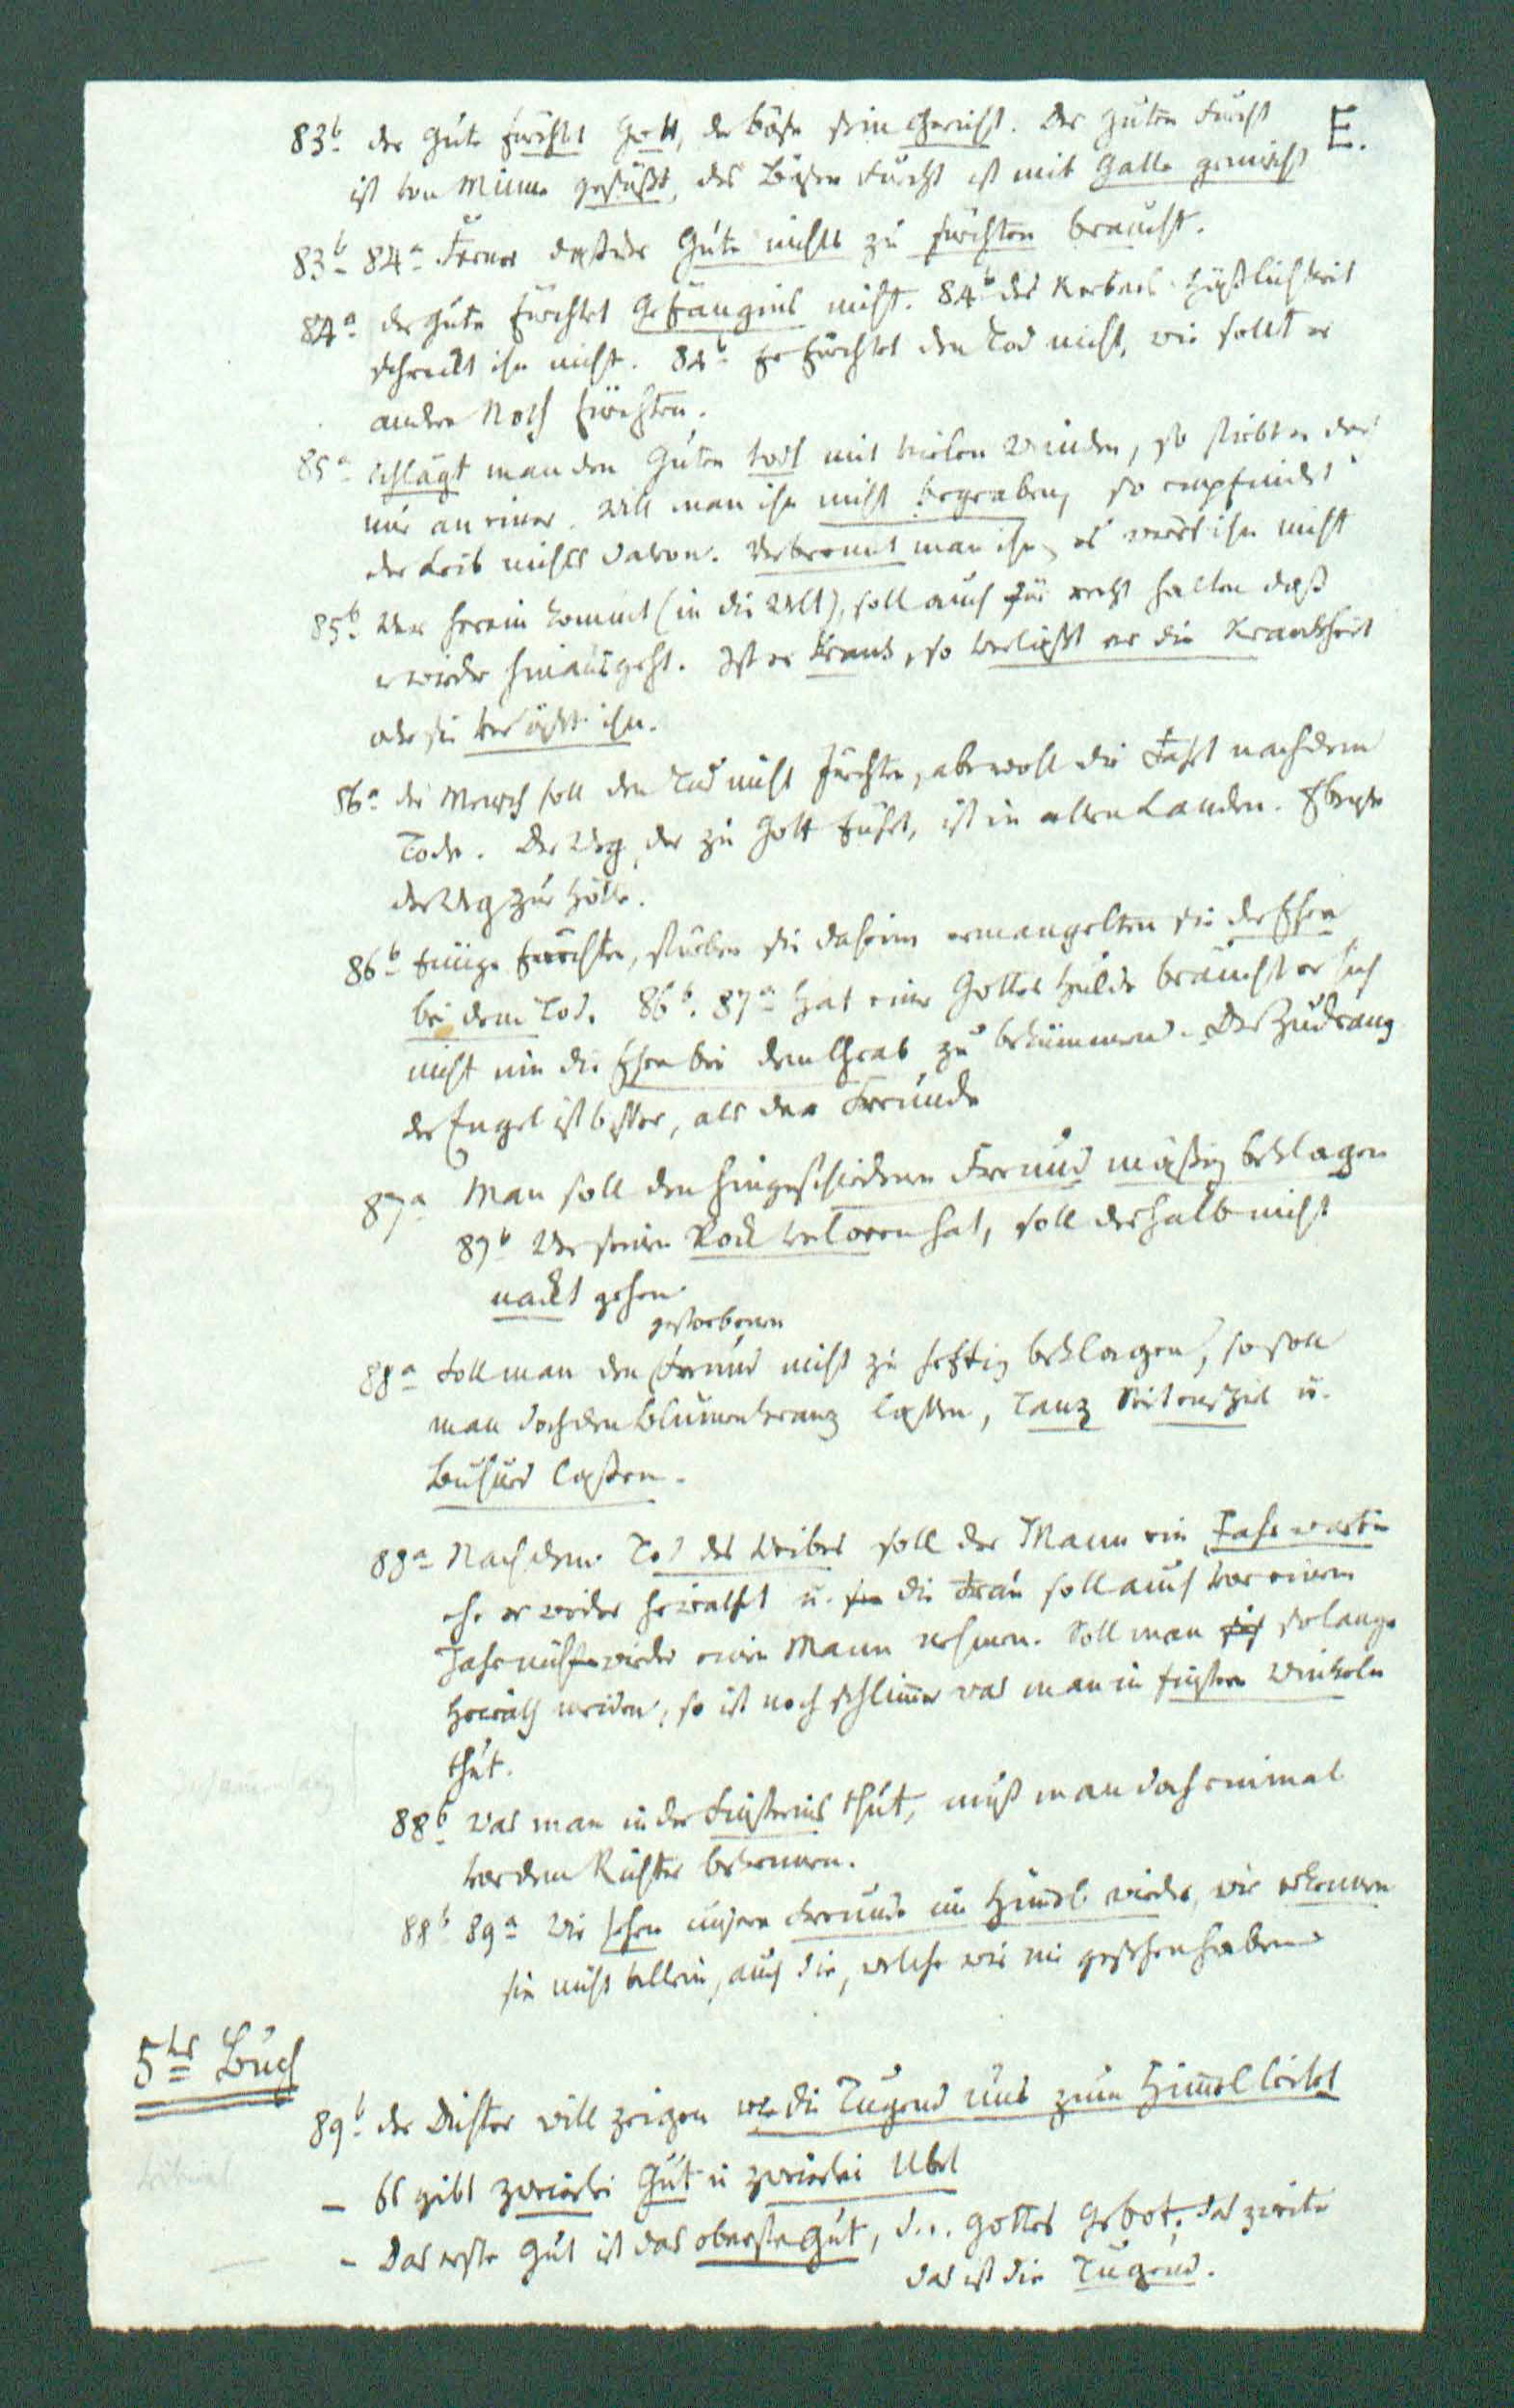 E.
83b der Gute fürchtet Gott, der böse sein Gericht. Des guten Furcht
ist von Minne gesüßt, des Bösen Furcht ist mit Galle gemischt
83b 84a Ferner daß der Gute nichts zu fürchten braucht.
84a der Gute fürchtet Gefängnis nicht. 84b des Kerkers Häßlichkeit
schreckt ihn nicht. 84b Er fürchtet den Tod nicht, wie sollt er
andre Noth fürchten.
85a Schlägt man den Guten todt mit vielen Wunden, so stirbt er doch
nur an einer. Will man ihn nicht begraben, so empfindet
der Leib nichts davon. Verbrennt man ihn, es wird ihn nicht
85b Wer herein kommt (in die Welt), soll auch für recht halten daß
er wieder hinausgeht. Ist er krank, so verläßt er die Krankheit
oder sie verläßt ihn.
86a der Mensch soll den Tod nicht fürchten, aber wohl die Fahrt nach dem
Tode. Der Weg, der zu Gott führt, ist in allen Landen. Ebenso
der Weg zur Hölle.
86b Einige fürchten, stürben sie daheim ermangelten sie der Ehre
bei dem Tod. 86b. 87a Hat einer Gottes Hulde braucht er sich
nicht um die Ehre bei dem Grab zu bekümmern. Der Zudrang
der Engel ist besser, als der Freunde
87a Man soll den hingeschiedenen Freund mäßig beklagen
89b Wer seinen Rock verloren hat, soll deshalb nicht
nackt gehen.
gestorbenen
88a Soll man den Freund nicht zu heftig beklagen, so soll
man doch den Blumenkranz lassen, Tanz Saitenspiel u.
Buhurd lassen.
88a Nach dem Tod des Weibes soll der Mann ein Jahr warten
ehe er wieder heirathet u. die Frau soll auch vor einem
Jahr nicht wieder einen Mann nehmen. Soll man solange
Heirath meiden, so ist noch schlimmer was man in finstern Winkeln
thut.
88b Was man in der Finsternis thut, muß man doch einmal
vor dem Richter bekennen.
88b 89a Wir sehen unsere Freunde im Himmel wieder, wir erkennen
sie nicht allein, auch die, welche wir nie gesehen haben
5tes Buch
89b der Dichter will zeigen wie die Tugend uns zum Himmel leitet
– Es gibt zweierlei Gut u zweierlei Übel
– Das erste Gut ist das oberste Gut, d.i. Gottes Gebot; das zweite
das ist die Tugend.